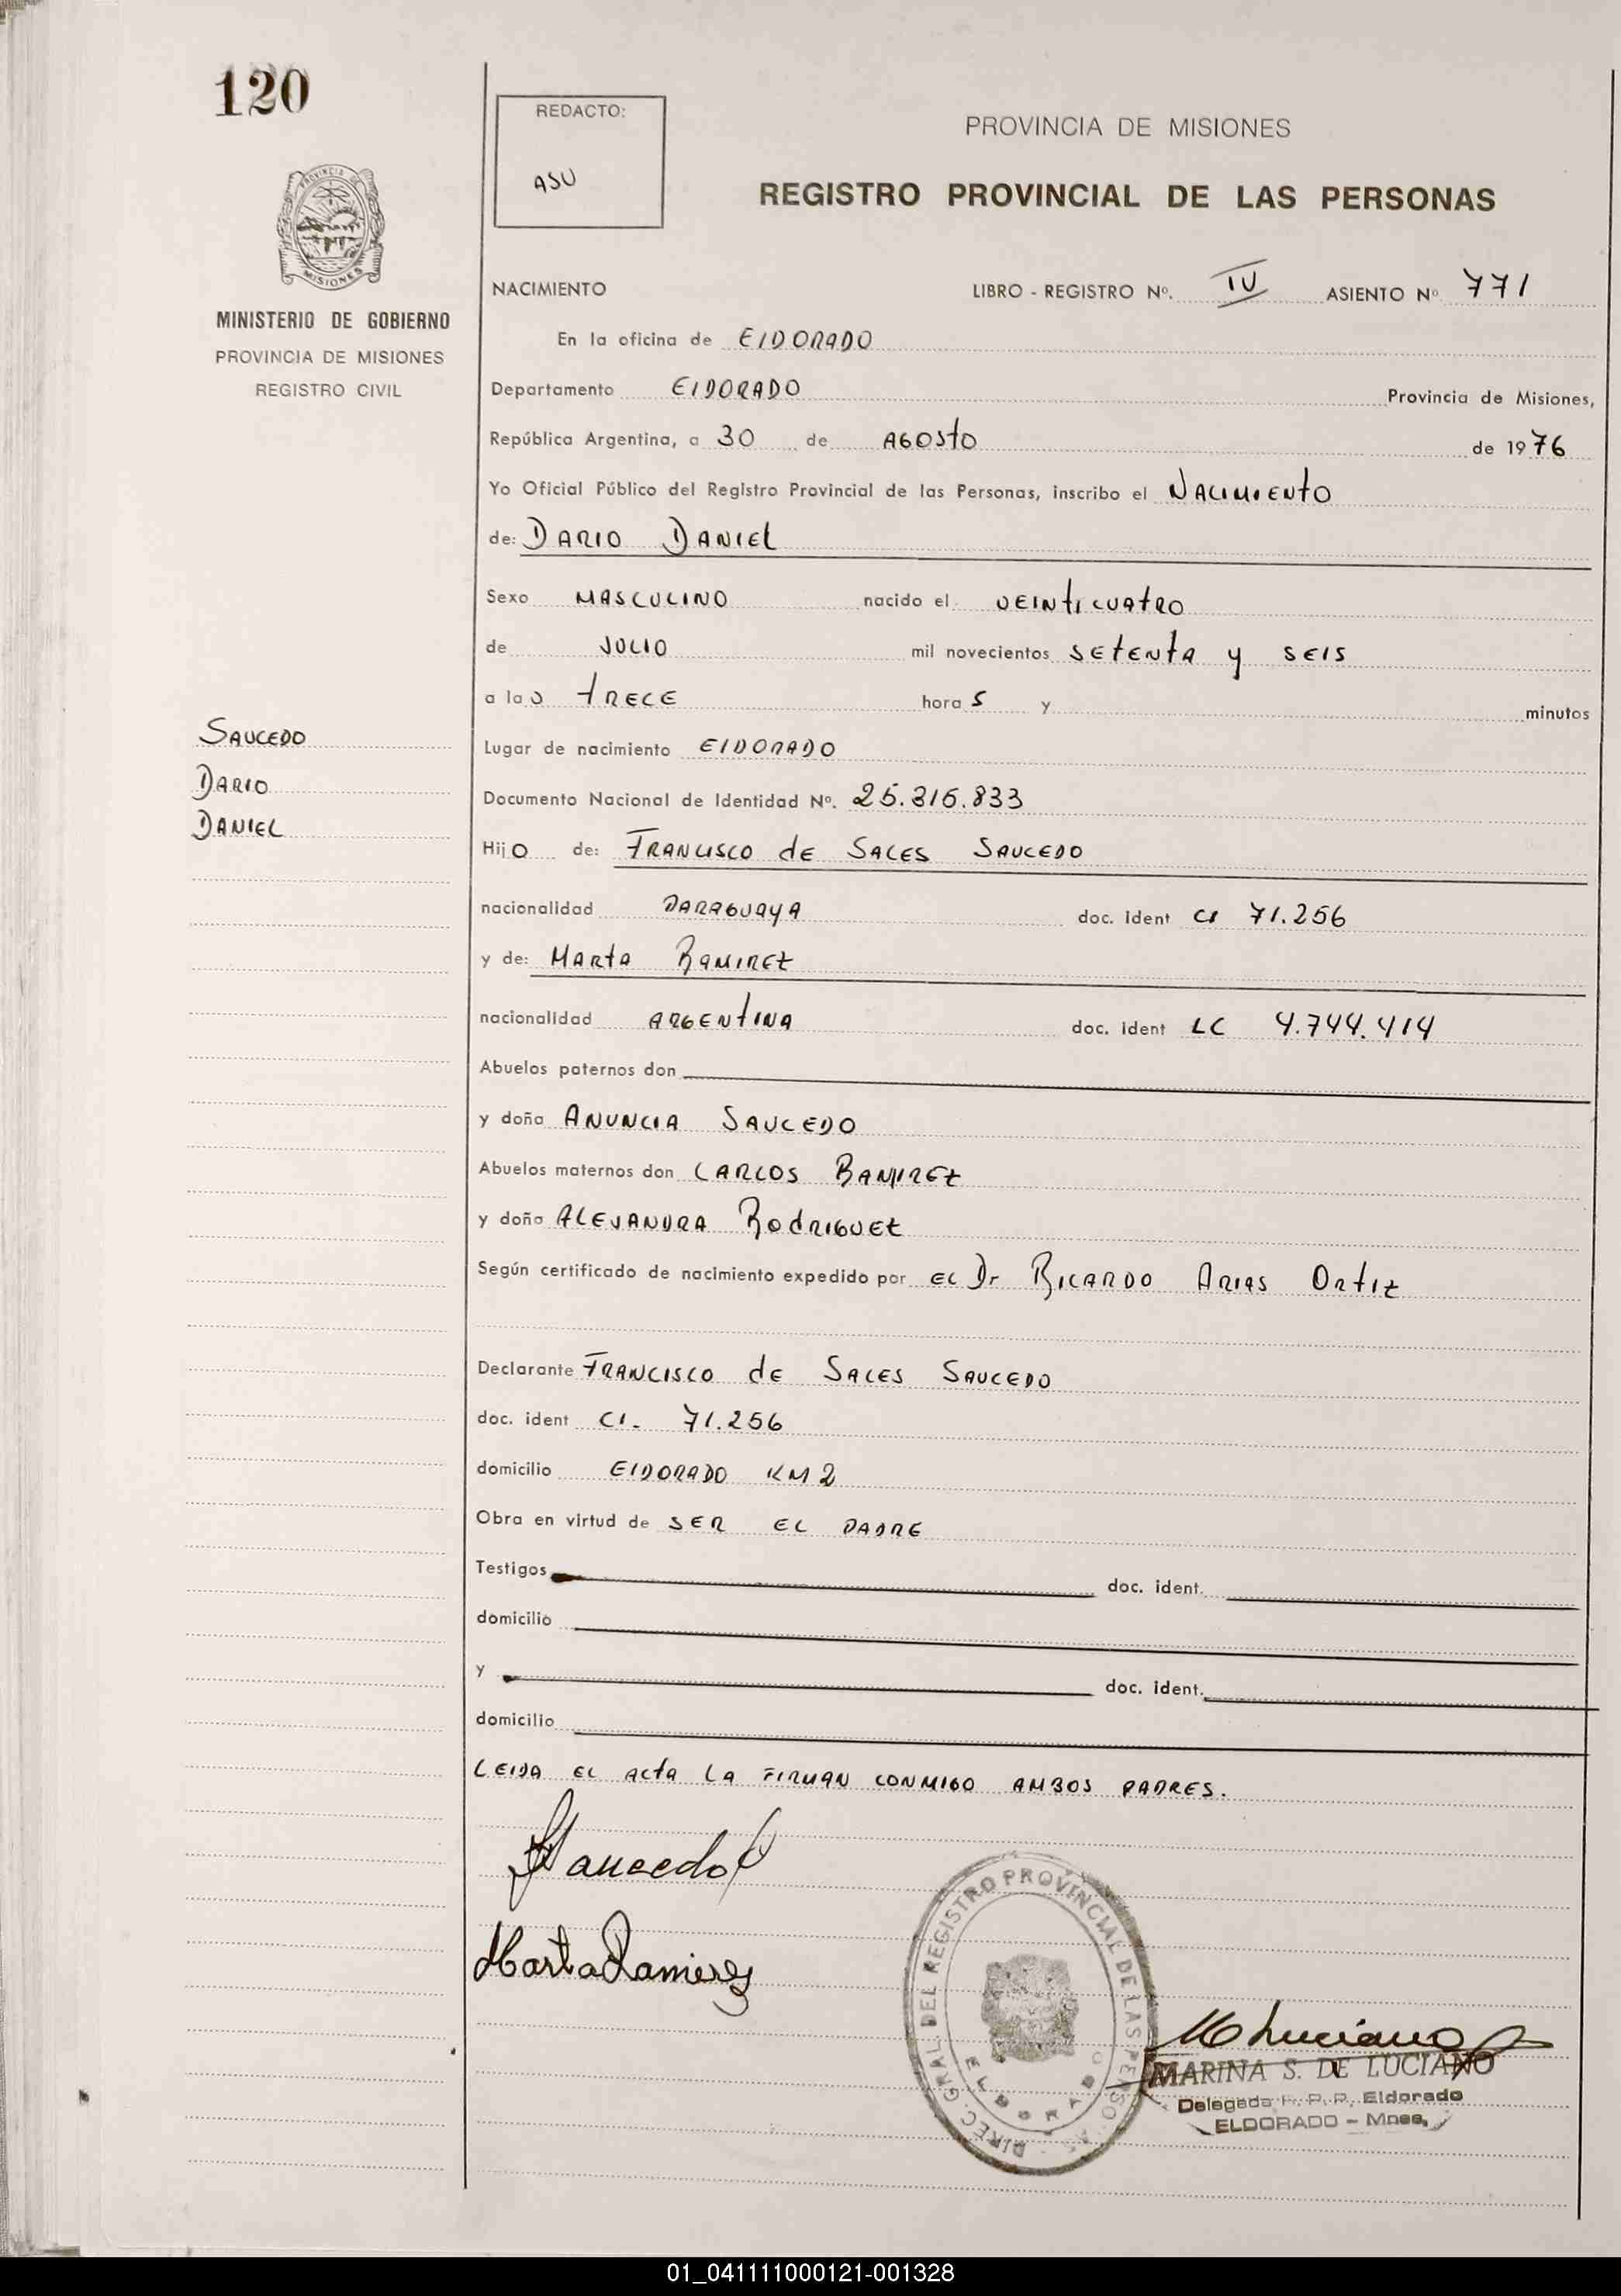 120
REDACTO:
ASU
PROVINCIA DE MISIONES
REGISTRO PROVINCIAL DE LAS PERSONAS
MINISTERIO DE GOBIERNO
PROVINCIA DE MISIONES
REGISTRO CIVIL
NACIMIENTO LIBRO - REGISTRO Nº. IV ASIENTO Nº 771
En la oficina de ElDORADO
Departamento ElDORADO Provincia de Misiones,
República Argentina, a 30 de AGOSTO de 1976
Yo Oficial Público del Registro Provincial de las Personas, inscribo el NACIMIENTO
de: DARIO DANIEL
Sexo MASCULINO nacido el VEINTICUATRO
de JULIO mil novecientos SETENTA y SEIS
a las TRECE horas y minutos
SAUCEDO
DARIO
DANIEL
Lugar de nacimiento ElDORADO
Documento Nacional de Identidad Nº. 25.316.833
Hijo de: FRANCISCO de SALES SAUCEDO
nacionalidad PARAGUAYA doc. ident CI 71.256
y de: MARTA RAMIREZ
nacionalidad ARGENTINA doc. ident LC 4.744.414
Abuelos paternos don
y doña ANUNCIA SAUCEDO
Abuelos maternos don CARLOS RAMIREZ
y doña ALEJANDRA RODRIGUEZ
Según certificado de nacimiento expedido por EL Dr RICARDO ARIAS ORTIZ
Declarante FRANCISCO de SALES SAUCEDO
doc. ident CI. 71.256
domicilio ElDORADO KM 2
Obra en virtud de SER EL PADRE
Testigos doc. ident.
domicilio
y doc. ident.
domicilio
LEIDA EL ACTA LA FIRMAN CONMIGO AMBOS PADRES.
Saucedo
Marta Ramirez
DIREC. GRAL. DEL REGISTRO PROVINCIAL DE LAS PERSONAS
ELDORADO
M Luciano
MARINA S. DE LUCIANO
Delegada R. P. P. Eldorado
ELDORADO - Mnes.
01_041111000121-001328